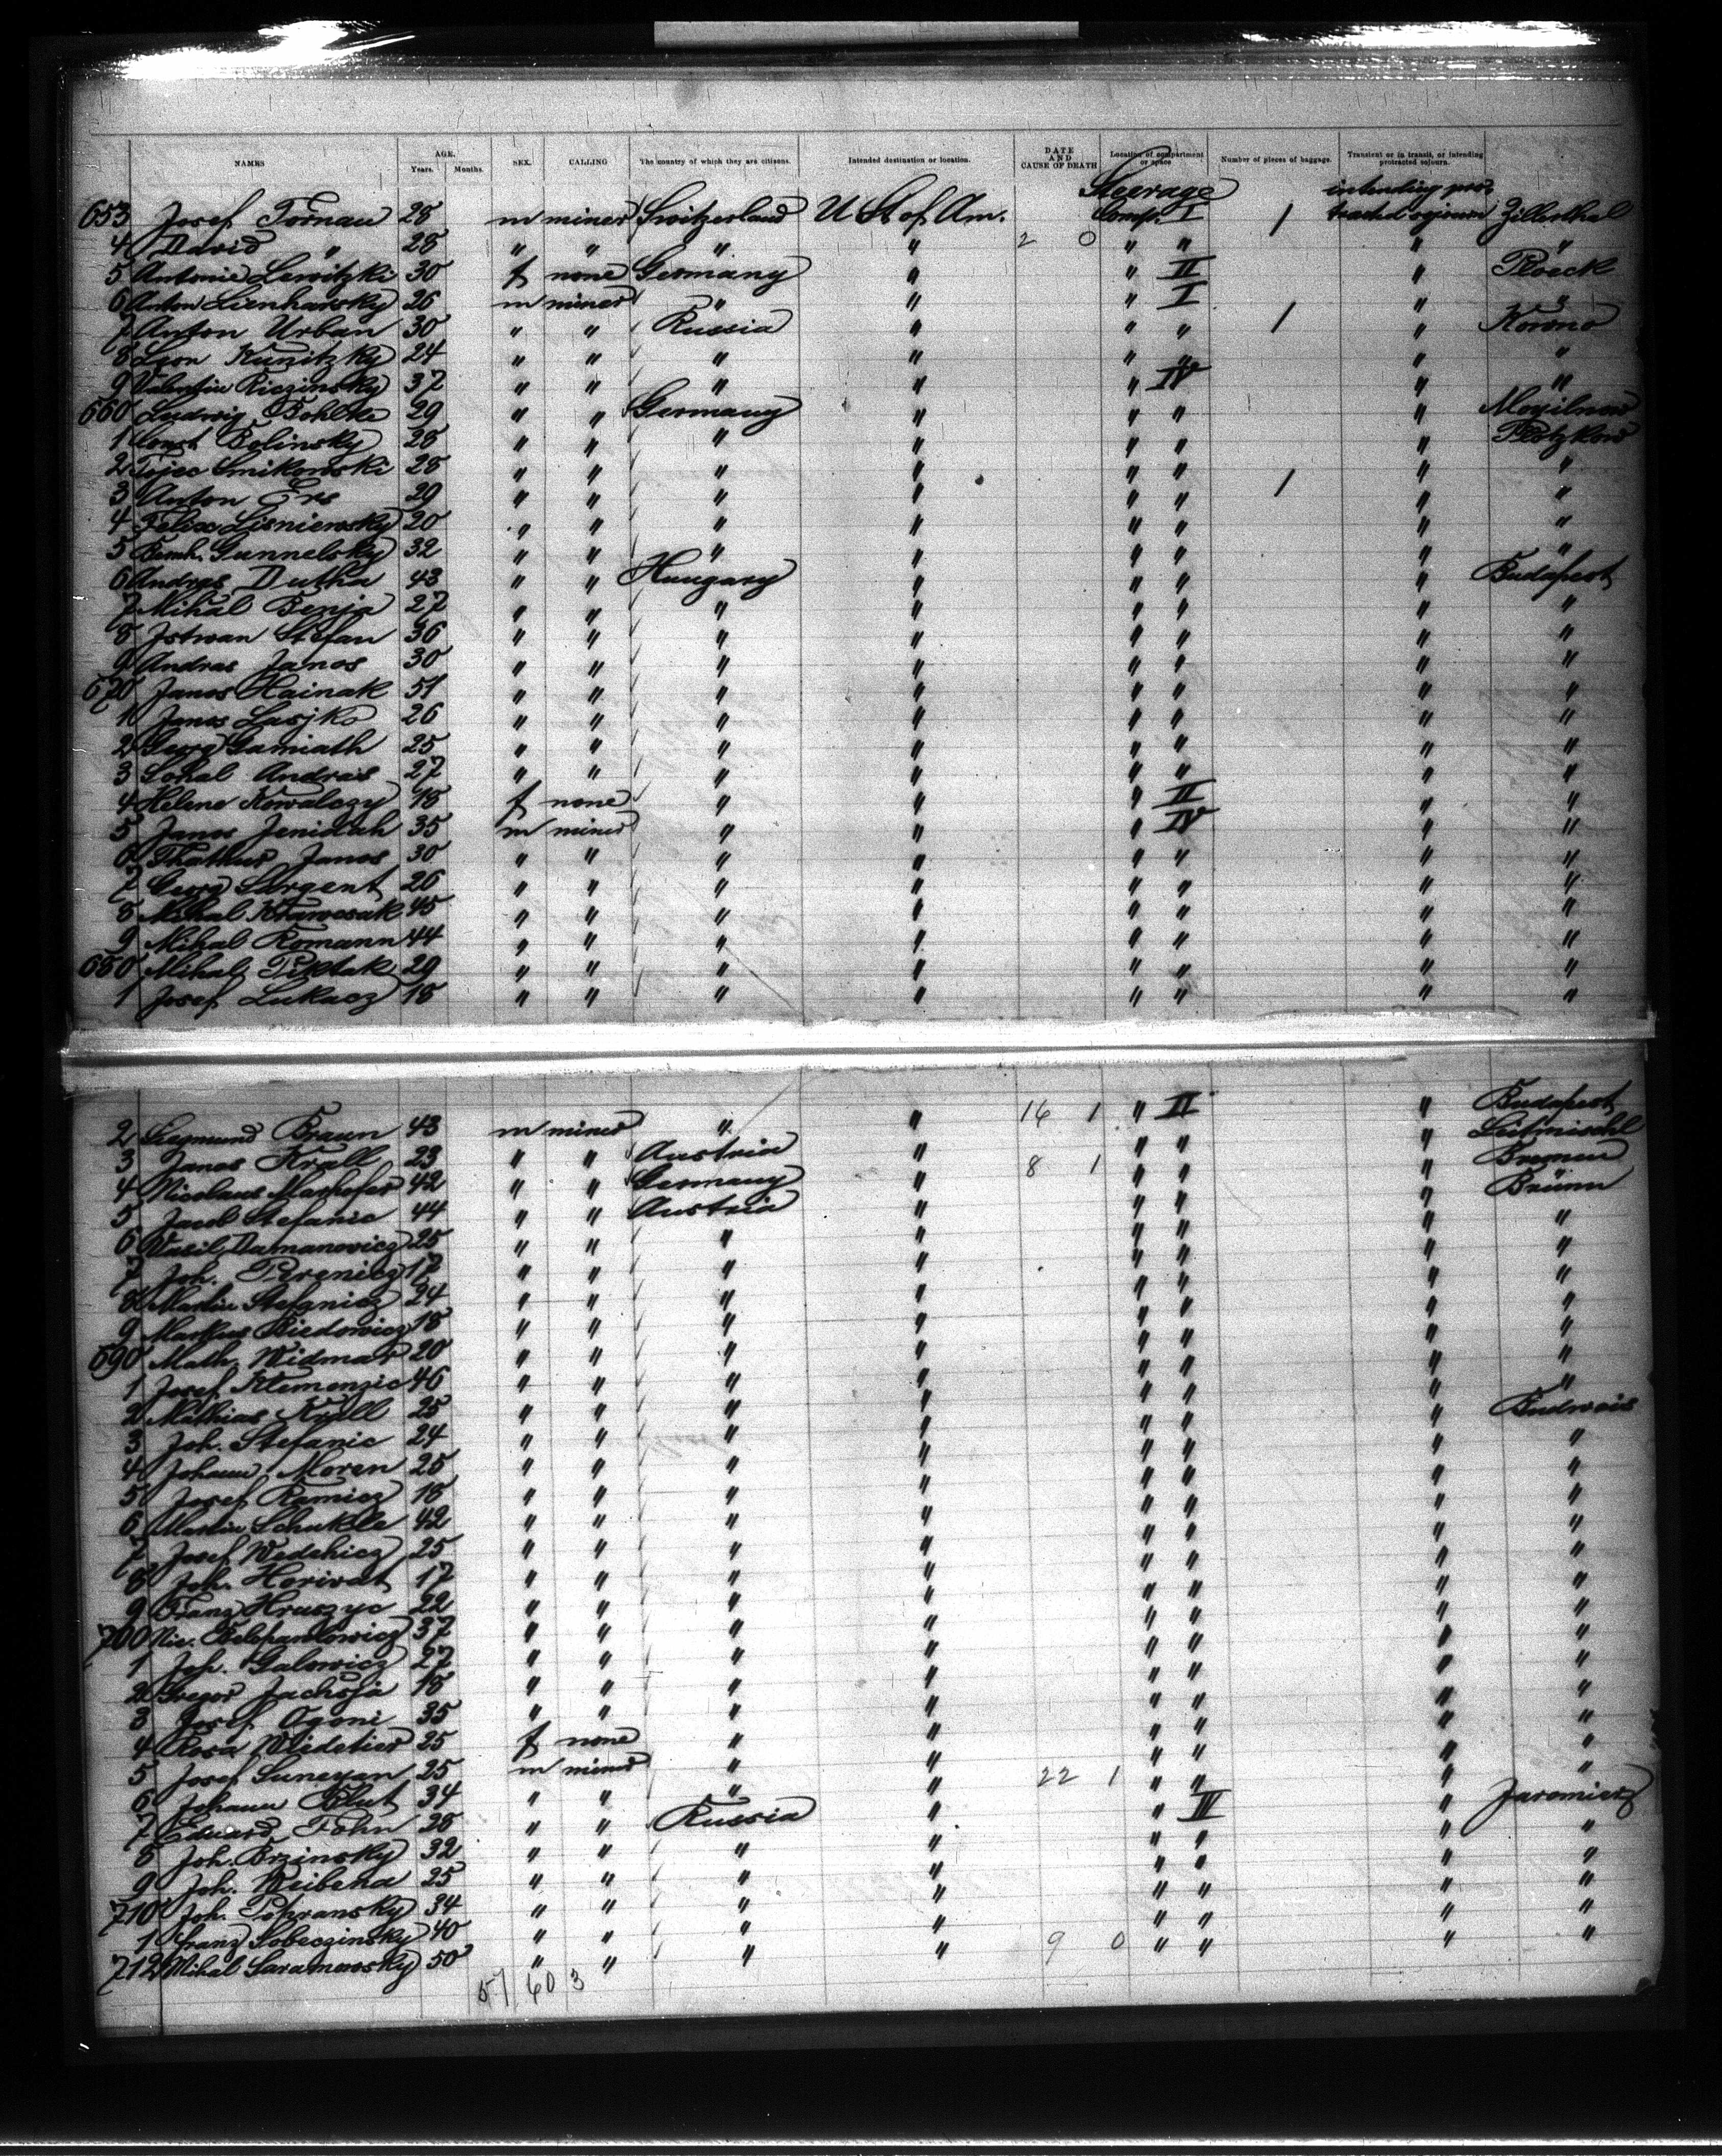 NAMES AGE. Years. Months. SEX. CALLING The country of which they are citizens. Intended destination or location. DATE AND CAUSE OF DEATH Location of compartment or space Number of pieces of baggage. Transient or in transit, or intending protracted sojourn.
Steerage intending pro-
653 Josef Tornau 28 m miner Switzerland U St of Am. Comp. I 1 tracted sojourn Zillerthal
4 David " 28 " " " " 2 0 " " " "
5 Antonie Lewitzki 30 f none Germany " " II " Plock
6 Anton Lienharsky 26 m miner " " " I " "
7 Anton Urban 30 " " Russia " " " 1 " Kowno
8 Leon Kunitzky 24 " " " " " " " "
9 Valentin Riczinsky 37 " " " " " IV " "
660 Ludwig Bohlke 29 " " Germany " " " "
1 Const Bolinsky 28 " " " " " " "
2 Smikowski 28 " " " " " " " "
3 Anton Ers 29 " " " " " " 1 " "
4 Felix Lisniewsky 20 " " " " " " " "
5 Bernh. Gunnelsky 32 " " " " " " " "
6 Andras Dutha 43 " " Hungary " " " " Budapest
7 Mihal Benja 27 " " " " " " " "
8 Istwan Stefan 36 " " " " " " " "
9 Andras Janos 30 " " " " " " " "
670 Janos Hainak 51 " " " " " " " "
1 Janos Lasjko 26 " " " " " " " "
2 Georg Gamiath 25 " " " " " " " "
3 Sohal Andras 27 " " " " " " " "
4 Helene Kowalczy 18 f none " " " II " "
5 Janos Jenidah 35 m miner " " " IV " "
6 Janos 30 " " " " " " " "
7 Georg Sargent 26 " " " " " " " "
8 Mihal Krawcsak 45 " " " " " " " "
9 Mihal Romann 44 " " " " " " " "
680 Mihal Piktak 29 " " " " " " " "
1 Josef Lukacz 18 " " " " " " " "
2 Siegmund Braun 43 m miner " " 14 1 " II " Budapest
3 Janos Krall 23 " " Austria " " " "
4 Nicolaus 42 " " Germany " 8 1 " " " Bremen
5 Jacob Stefanic 44 " " Austria " " " " Brünn
6 Wasil Damanovicz 25 " " " " " " " "
7 Joh. Perenicz 17 " " " " " " " "
8 Martin Stefanicz 24 " " " " " " " "
9 Markus Riedowicz 18 " " " " " " " "
690 Math. Widmar 20 " " " " " " " "
1 Josef Klemenzic 46 " " " " " " " "
2 Mathias Krall 25 " " " " " " " Budweis
3 Joh. Stefanic 24 " " " " " " " "
4 Johann Moren 25 " " " " " " " "
5 Josef Ramicz 18 " " " " " " " "
6 Martin Schukle 42 " " " " " " " "
7 Josef 25 " " " " " " " "
8 Joh. Horivat 17 " " " " " " " "
9 Franz Hruszyc 22 " " " " " " " "
700 Nic. 37 " " " " " " " "
1 Joh. Galowicz 27 " " " " " " " "
2 Gregor Jachsja 18 " " " " " " " "
3 Josef Ogoni 35 " " " " " " " "
4 Rosa Weidetier 25 f none " " " " " "
5 Josef Suneyan 25 m miner " " " " " "
6 Johann Blut 34 " " " " 22 1 " " " "
7 Eduard Fohn 28 " " Russia " " IV " Jaromierz
8 Joh. Brzinsky 32 " " " " " " " "
9 Joh. Weibena 25 " " " " " " " "
710 Joh. Pohransky 34 " " " " " " " "
1 Franz Sobeczinsky 40 " " " " " " " "
712 Mihal Saramowsky 50 " " " " 9 0 " " " "
57 60 3